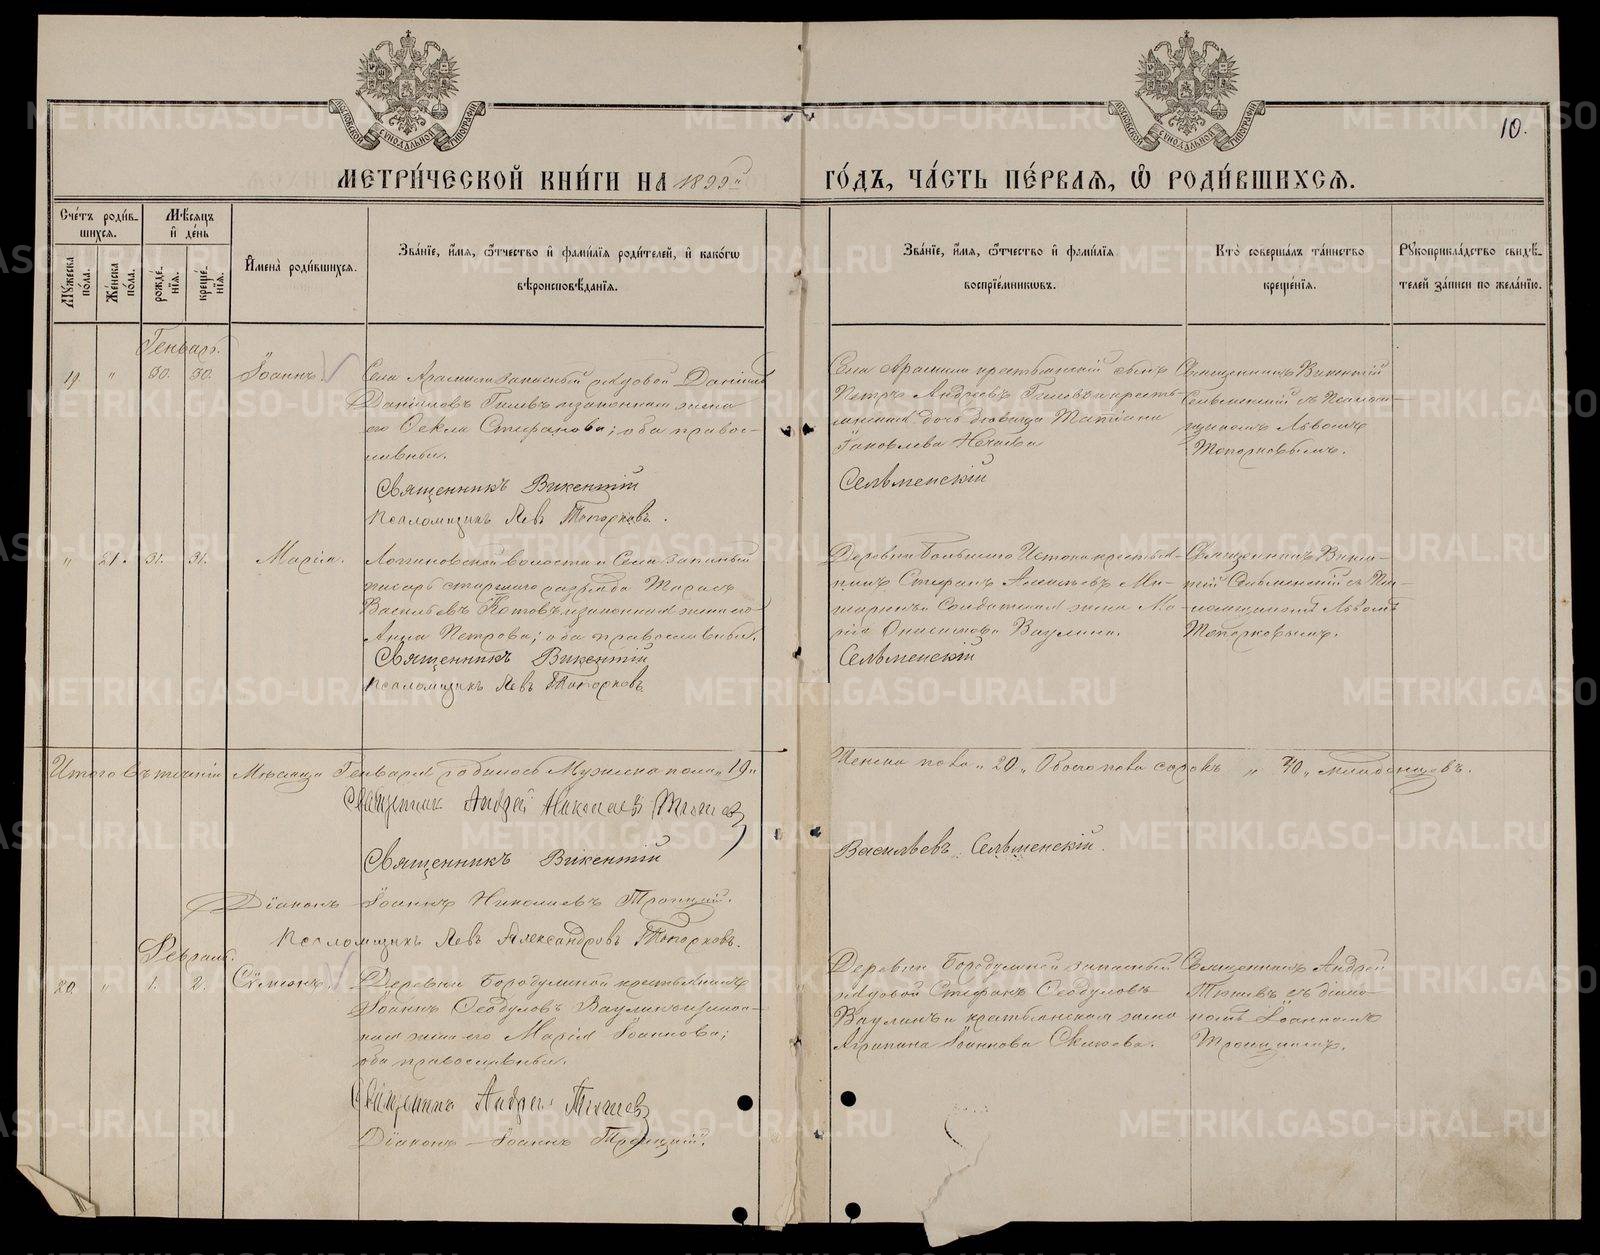 МОСКОВСКОЙ СѴНОДАЛЬНОЙ ТИПОГРАФІИ
МОСКОВСКОЙ СѴНОДАЛЬНОЙ ТИПОГРАФІИ
10.
МЕТРИ́ЧЕСКОЙ КНИ́ГИ НА 1899й ГО́ДЪ, ЧА́СТЬ ПЕ́РВАЯ, Ѽ РОДИ́ВШИХСЯ.
Сче́тъ роди́в-
шихся.
Мѣ́сяцъ
и де́нь
Мꙋжеска по́ла.
Же́нска по́ла.
рожде́нїя.
креще́нїя.
И҆мена̀ роди́вшихся.
Зва́нїе, и҆́мя, ѻ҆́тчество и҆ фами́лїя роди́телей, и҆ како́гѡ
вѣроисповѣ́данїя.
Зва́нїе, и҆́мя, ѻ҆́тчество и҆ фами́лїя
воспрїе́мникѡвъ.
Кто̀ соверша́лъ та́инство
креще́нїя.
Рꙋкоприкла́дство свидѣ́-
телей за́писи по жела́нїю.
Генварь.
19. " 30. 30. Іоаннъ.
Села Арамили запасный рядовой Даніилъ
Даниловъ Гилевъ и законная жена
его Ѳекла Стефанова; оба правос-
лавные.
Священникъ Викентій
Псаломщикъ Левъ Топорковъ.
Села Арамили крестьянскій сынъ
Петръ Андреевъ Гилевъ и кресть-
янская дочь девица Татіана
Іаковлева Нечаева
Сельменскій
Священникъ Викентій
Сельменскій съ Псалом-
щикомъ Львомъ
Топорковымъ.
" 21. 31. 31. Марія.
Логиновской волости и Села запасный
писарь старшаго разряда Тарасъ
Васильевъ Котовъ и законная жена его
Анна Петрова; оба православные.
Священникъ Викентій
Псаломщикъ Левъ Топорковъ
Деревни Большаго Истока крестья-
нинъ Стефанъ
солдатская жена Ма-
рія Онисимова Ваулина.
Сельменскій
Священникъ Викен-
тій Сельменскій съ Пса-
ломщикомъ Львомъ
Топорковымъ.
Итого въ теченіи Месяца Генваря родилось Мужеска пола "19"
Женска пола "20" Обоего пола сорокъ "40" младенцевъ.
Священник Андрей Николаев
Священникъ Викентій
Васильевъ Сельменскій.
Діаконъ Іоаннъ Николаевъ Троицкій.
Псаломщикъ Левъ Александровъ Топорковъ.
Февраль.
20. " 1. 2. Сѵмеонъ.
Деревни Бородулиной крестьянинъ
Іоаннъ Ѳеодуловъ Ваулинъ и закон-
ная жена его Марія Іоаннова;
оба православные.
Священникъ Андрей
Діаконъ Іоаннъ Троицкій.
Деревни Бородулиной запасный
рядовой Стефанъ Ѳеодуловъ
Ваулинъ и крестьянская жена
Агрипина Іоаннова
Священникъ Андрей
съ діако-
номъ Іоанномъ
Троицкимъ.
METRIKI.GASO-URAL.RU